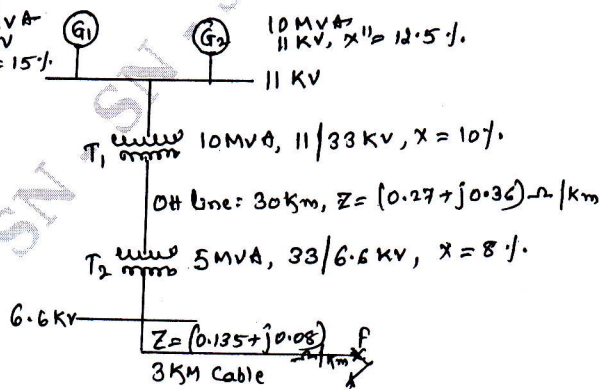 VA
V
= 15%
G1
G2
10 MVA
11 KV, x" = 12.5 %.
11 KV
T1
10 MVA, 11/33 KV, X = 10%.
OH line: 30 Km, Z = (0.27 + j0.36) Ω/Km
T2
5 MVA, 33/6.6 KV, X = 8%.
6.6 KV
Z = (0.135 + j0.08) Ω/Km
F
3 KM Cable
SN - SN - SN